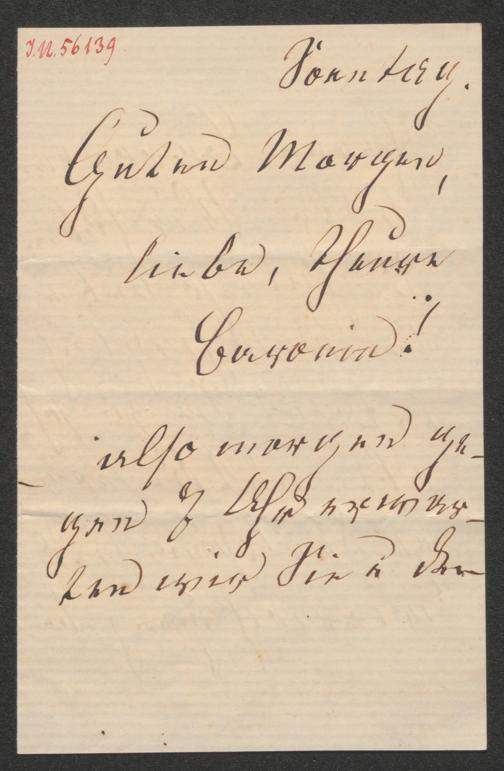 I.N. 56139
Sonntag.
Guten Morgen,
liebe, theure
Baronin!
also morgen ge-
gen 7 Uhr erwar-
ten wir Sie u den